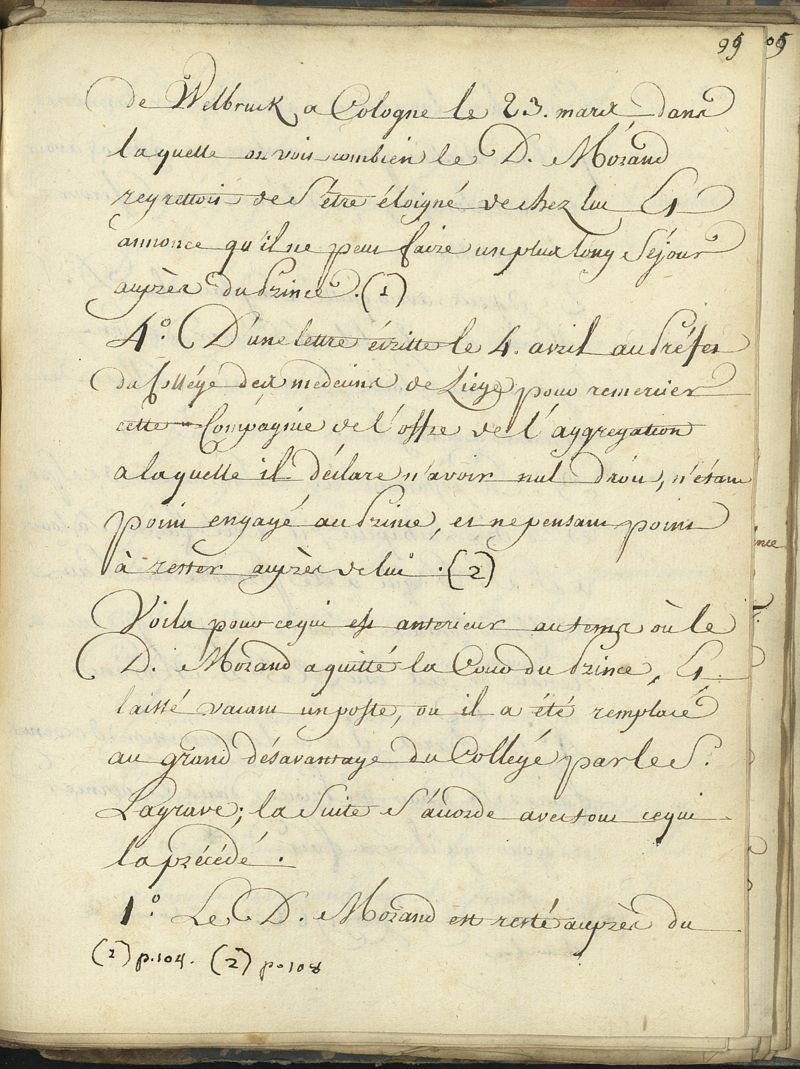 99
de Welbruck a Cologne le 23. mars dans
laquelle on voit combien le D. Morand
regrettoit de s'être éloigné de chez lui Et
annonce qu'il ne peut faire un plus long Séjour
auprès du Prince. (1)
4.° D'une lettre écritte le 4. avril au Préfet
du Collége des medecins de Liege pour remercier
cette Compagnie de l'offre de l'aggregation
a laquelle il déclare n'avoir nul droit, n'étant
point engagé au Prince, et ne pensant point
à rester auprès de lui. (2)
Voila pour ce qui est anterieur au tems où le
D. Morand a quitté la Cour du Prince, Et
laissé vacant un poste, ou il a été remplacé
au grand désavantage du Collégé par le S.
Lagrave; la Suite s'accorde avec tout ce qui
la précédé.
1.° Le D. Morand est resté auprès du
(1) p. 104. (2) p. 108